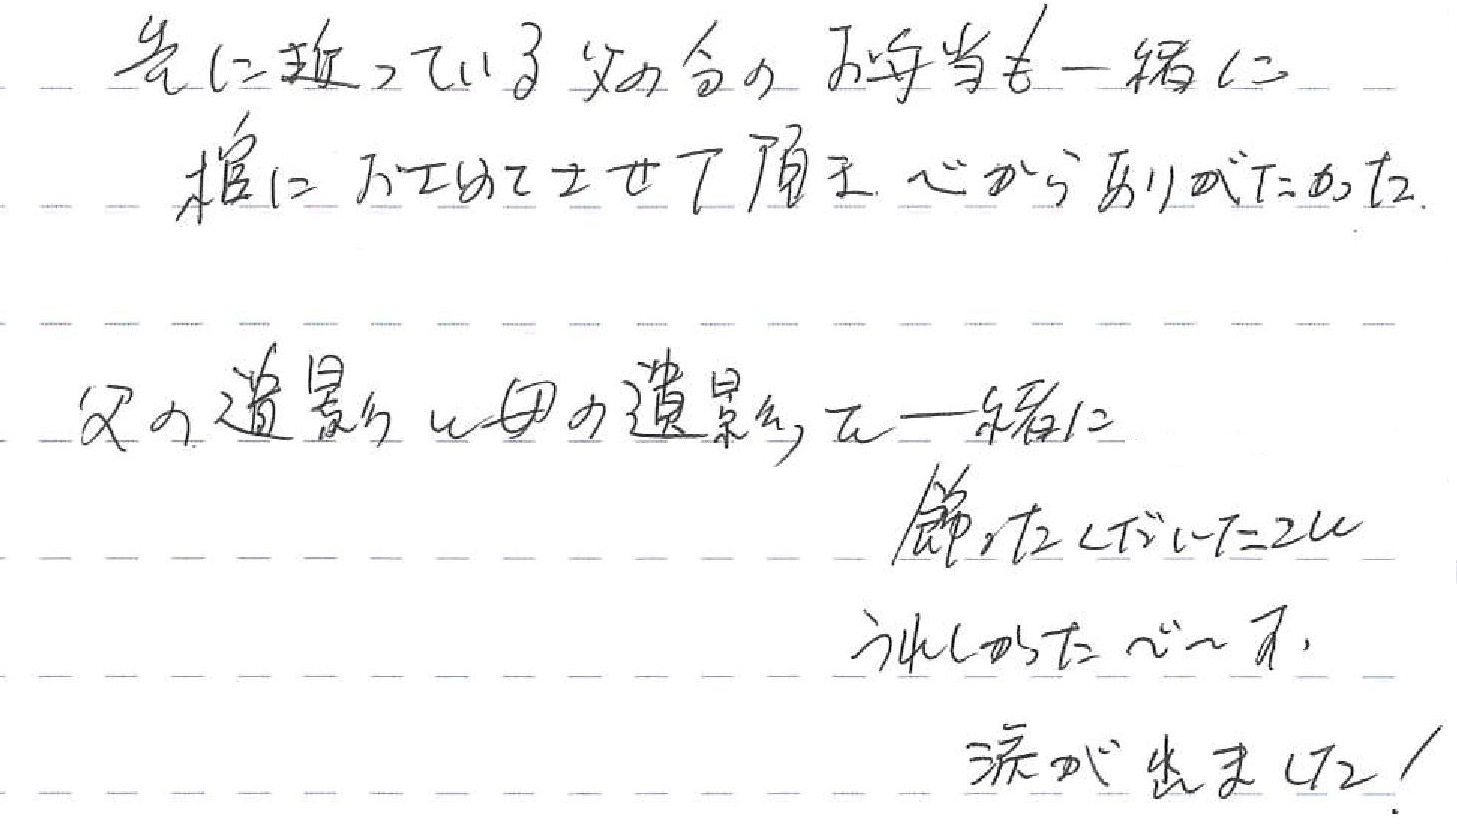 先に逝っている父の分のお弁当も一緒に
棺におさめてさせて頂き 心からありがたかった.
父の遺影と母の遺影を一緒に
飾ってくださいたこと
うれしかったで〜す.
涙が出ました!